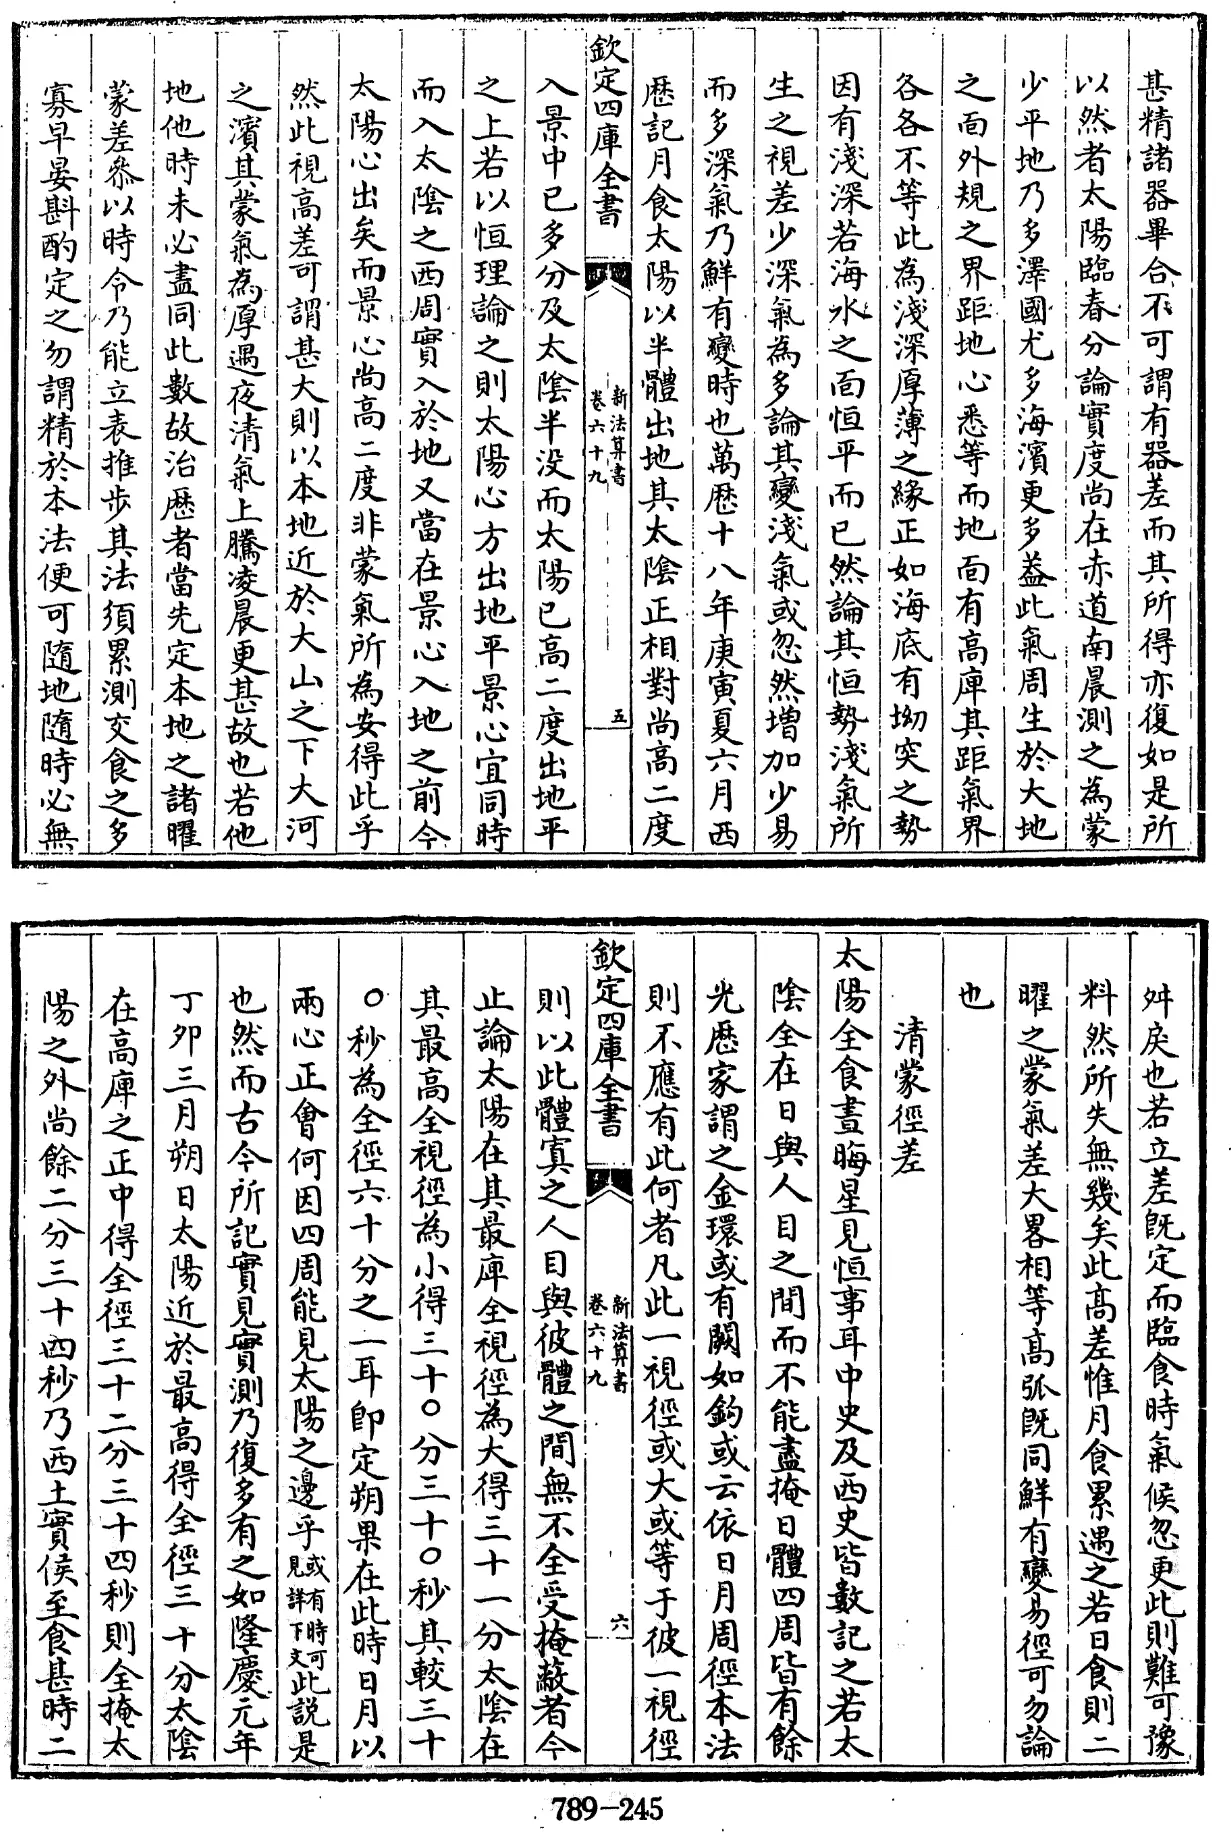 甚精諸器畢合不可謂有器差而其所得亦復如是所
以然者太陽臨春分論實度尚在赤道南晨測之為蒙
少平地乃多澤國尤多海濱更多葢此氣周生於大地
之面外規之界距地心悉等而地面有高庳其距氣界
各各不等此為淺深厚薄之緣正如海底有坳突之勢
因有淺深若海水之面恒平而已然論其恒勢淺氣所
生之視差少深氣為多論其變淺氣或忽然增加少易
而多深氣乃鮮有變時也萬厯十八年庚寅夏六月西
厯記月食太陽以半體出地其太陰正相對尚高二度
欽定四庫全書
新法算書
卷六十九
五
入景中已多分及太陰半没而太陽已高二度出地平
之上若以恒理論之則太陽心方出地平景心宜同時
而入太陰之西周實入於地又當在景心入地之前今
太陽心出矣而景心尚高二度非蒙氣所為安得此乎
然此視高差可謂甚大則以本地近於大山之下大河
之濱其蒙氣為厚遇夜清氣上騰凌晨更甚故也若他
地他時未必盡同此數故治厯者當先定本地之諸曜
蒙差叅以時令乃能立表推步其法須累測交食之多
寡早晏斟酌定之勿謂精於本法便可隨地隨時必無
舛戾也若立差既定而臨食時氣候忽更此則難可豫
料然所失無幾矣此高差惟月食累遇之若日食則二
曜之蒙氣差大畧相等高弧既同鮮有變易徑可勿論
也
清蒙徑差
太陽全食晝晦星見恒事耳中史及西史皆數記之若太
陰全在日與人目之間而不能盡掩日體四周皆有餘
光厯家謂之金環或有闕如鈎或云依日月周徑本法
則不應有此何者凡此一視徑或大或等于彼一視徑
欽定四庫全書
新法算書
卷六十九
六
則以此體寘之人目與彼體之間無不全受掩蔽者今
止論太陽在其最庳全視徑為大得三十一分太陰在
其最高全視徑為小得三十〇分三十〇秒其較三十
〇秒為全徑六十分之一耳即定朔果在此時日月以
兩心正會何因四周能見太陽之邊乎或有時可見詳下文此説是
也然而古今所記實見實測乃復多有之如隆慶元年
丁夘三月朔日太陽近於最高得全徑三十分太陰
在高庳之正中得全徑三十二分三十四秒則全掩太
陽之外尚餘二分三十四秒乃西土實候至食甚時二
789-245